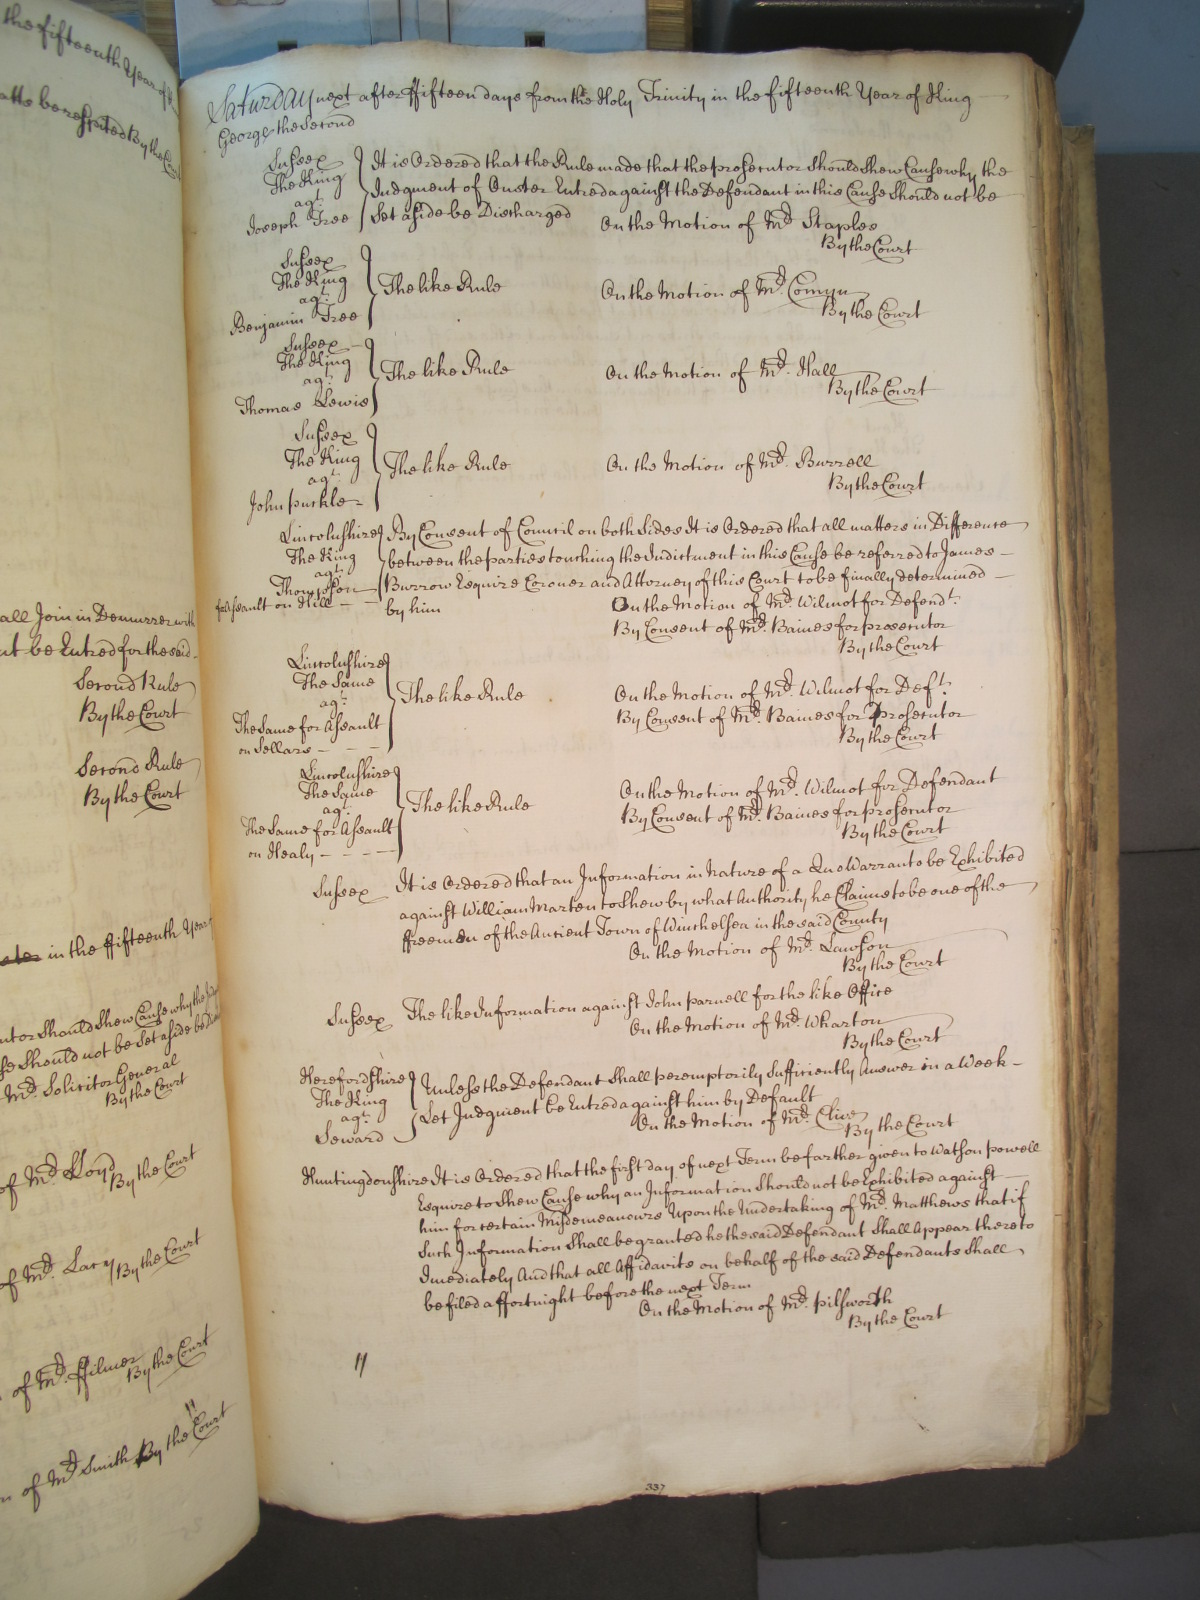 the fifteenth Year of K
atts be respited By the Court
all Join in Demurrer with
nt be Entred for the said
Second Rule
By the Court
Second Rule
By the Court
in the ffifteenth Year
utor Should Shew Cause why the
se Should not be Set aside be
Mr. Solicitor General
By the Court
of Mr. Lloyd By the Court
of Mr. Lacy By the Court
of Mr. ffilmer By the Court
of Mr Smith By the Court
Saturday next after ffifteen days from the Holy Trinity in the fifteenth Year of King
George the Second
Sussex
The King
agt.
Joseph Tree
It is Ordered that the Rule made that the prosecutor Should Shew Cause why the
Judgment of Ouster Entred against the Defendant in this Cause Should not be
Set aside be Discharged
On the Motion of Mr. Staples
By the Court
Sussex
The King
agt.
Benjamin Tree
The like Rule
On the Motion of Mr. Comyn
By the Court
Sussex
The King
agt.
Thomas Lewis
The like Rule
On the Motion of Mr. Hall
By the Court
Sussex
The King
agt.
John puckle
The like Rule
On the Motion of Mr. Burrell
By the Court
Lincolnshire
The King
agt.
Thompson
for Assault on Hill
By Consent of Council on both Sides It is Ordered that all matters in Difference
between the parties touching the Indictment in this Cause be referred to James
Burrow Esquire Coroner and Attorney of this Court to be finally determined
by him
On the Motion of Mr. Wilmot for Defendt.
By Consent of Mr. Baines for prosecutor
By the Court
Lincolnshire
The Same
agt.
The Same for Assault
on Sellars
The like Rule
On the Motion of Mr. Wilmot for Deft.
By Consent of Mr. Baines for Prosecutor
By the Court
Lincolnshire
The Same
agt.
The Same for Assault
on Healy
The like Rule
On the Motion of Mr. Wilmot for Defendant
By Consent of Mr. Baines for prosecutor
By the Court
Sussex
It is Ordered that an Information in Nature of a Quo Warranto be Exhibited
against William Marten to Shew by what Authority he Claims to be one of the
ffreemen of the Ancient Town of Winchelsea in the said County
On the Motion of Mr. Lawson
By the Court
Sussex
The like Information against John parnell for the like Office
On the Motion of Mr. Wharton
By the Court
Herefordshire
The King
agt.
Seward
Unless the Defendant Shall peremptorily Sufficiently Answer in a Week
Let Judgment be Entred against him by Default
On the Motion of Mr. Clive
By the Court
Huntingdonshire It is Ordered that the first day of next Term be farther given to Watson powell
Esquire to Shew Cause why an Information Should not be Exhibited against
him for certain Misdemeanours Upon the Undertaking of Mr. Matthews that if
Such Information Shall be granted he the said Defendant Shall Appear thereto
Imediately And that all Affidavits on behalf of the said Defendants Shall
be filed a ffortnight before the next Term
On the Motion of Mr. pilsworth
By the Court
337